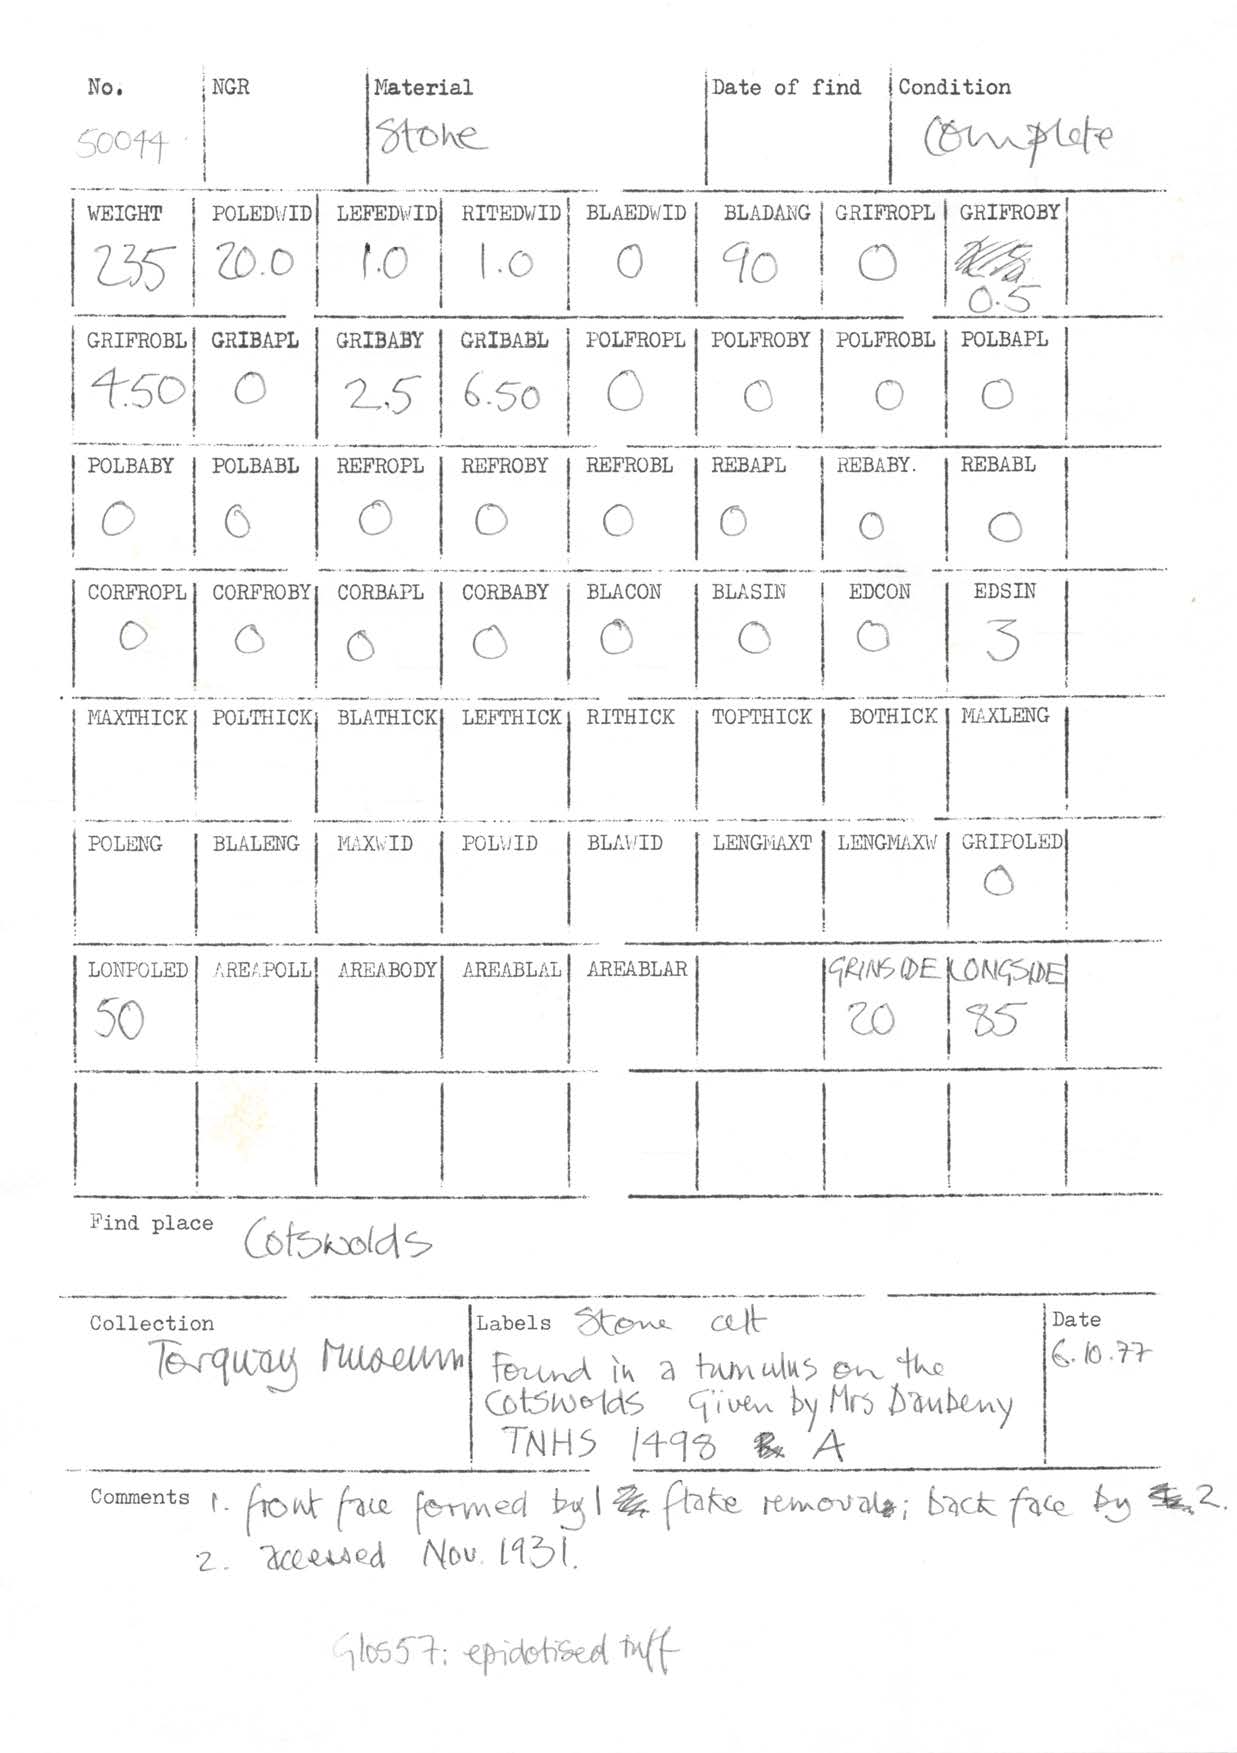 No. NGR Material Date of find Condition
50044 Stone Complete
WEIGHT POLEDWID LEFEDWID RITEDWID BLAEDWID BLADANG GRIFROPL GRIFROBY
235 20.0 1.0 1.0 0 90 0
0.5
GRIFROBL GRIBAPL GRIBABY GRIBABL POLFROPL POLFROBY POLFROBL POLBAPL
4.50 0 2.5 6.50 0 0 0 0
POLBABY POLBABL REFROPL REFROBY REFROBL REBAPL REBABY. REBABL
0 0 0 0 0 0 0 0
CORFROPL CORFROBY CORBAPL CORBABY BLACON BLASIN EDCON EDSIN
0 0 0 0 0 0 0 3
MAXTHICK POLTHICK BLATHICK LEFTHICK RITHICK TOPTHICK BOTHICK MAXLENG
POLENG BLALENG MAXWID POLWID BLAWID LENGMAXT LENGMAXW GRIPOLED
0
LONPOLED AREAPOLL AREABODY AREABLAL AREABLAR GRINSIDE LONGSIDE
50 20 85
Find place Cotswolds
Collection Labels Stone celt Date
Torquay Museum Found in a tumulus on the 6.10.77
Cotswolds Given by Mrs Daubeny
TNHS 1498 A
Comments 1. front face formed by 1 flake removal; back face by 2.
2. accessed Nov. 1931.
Glos57: epidotised tuff